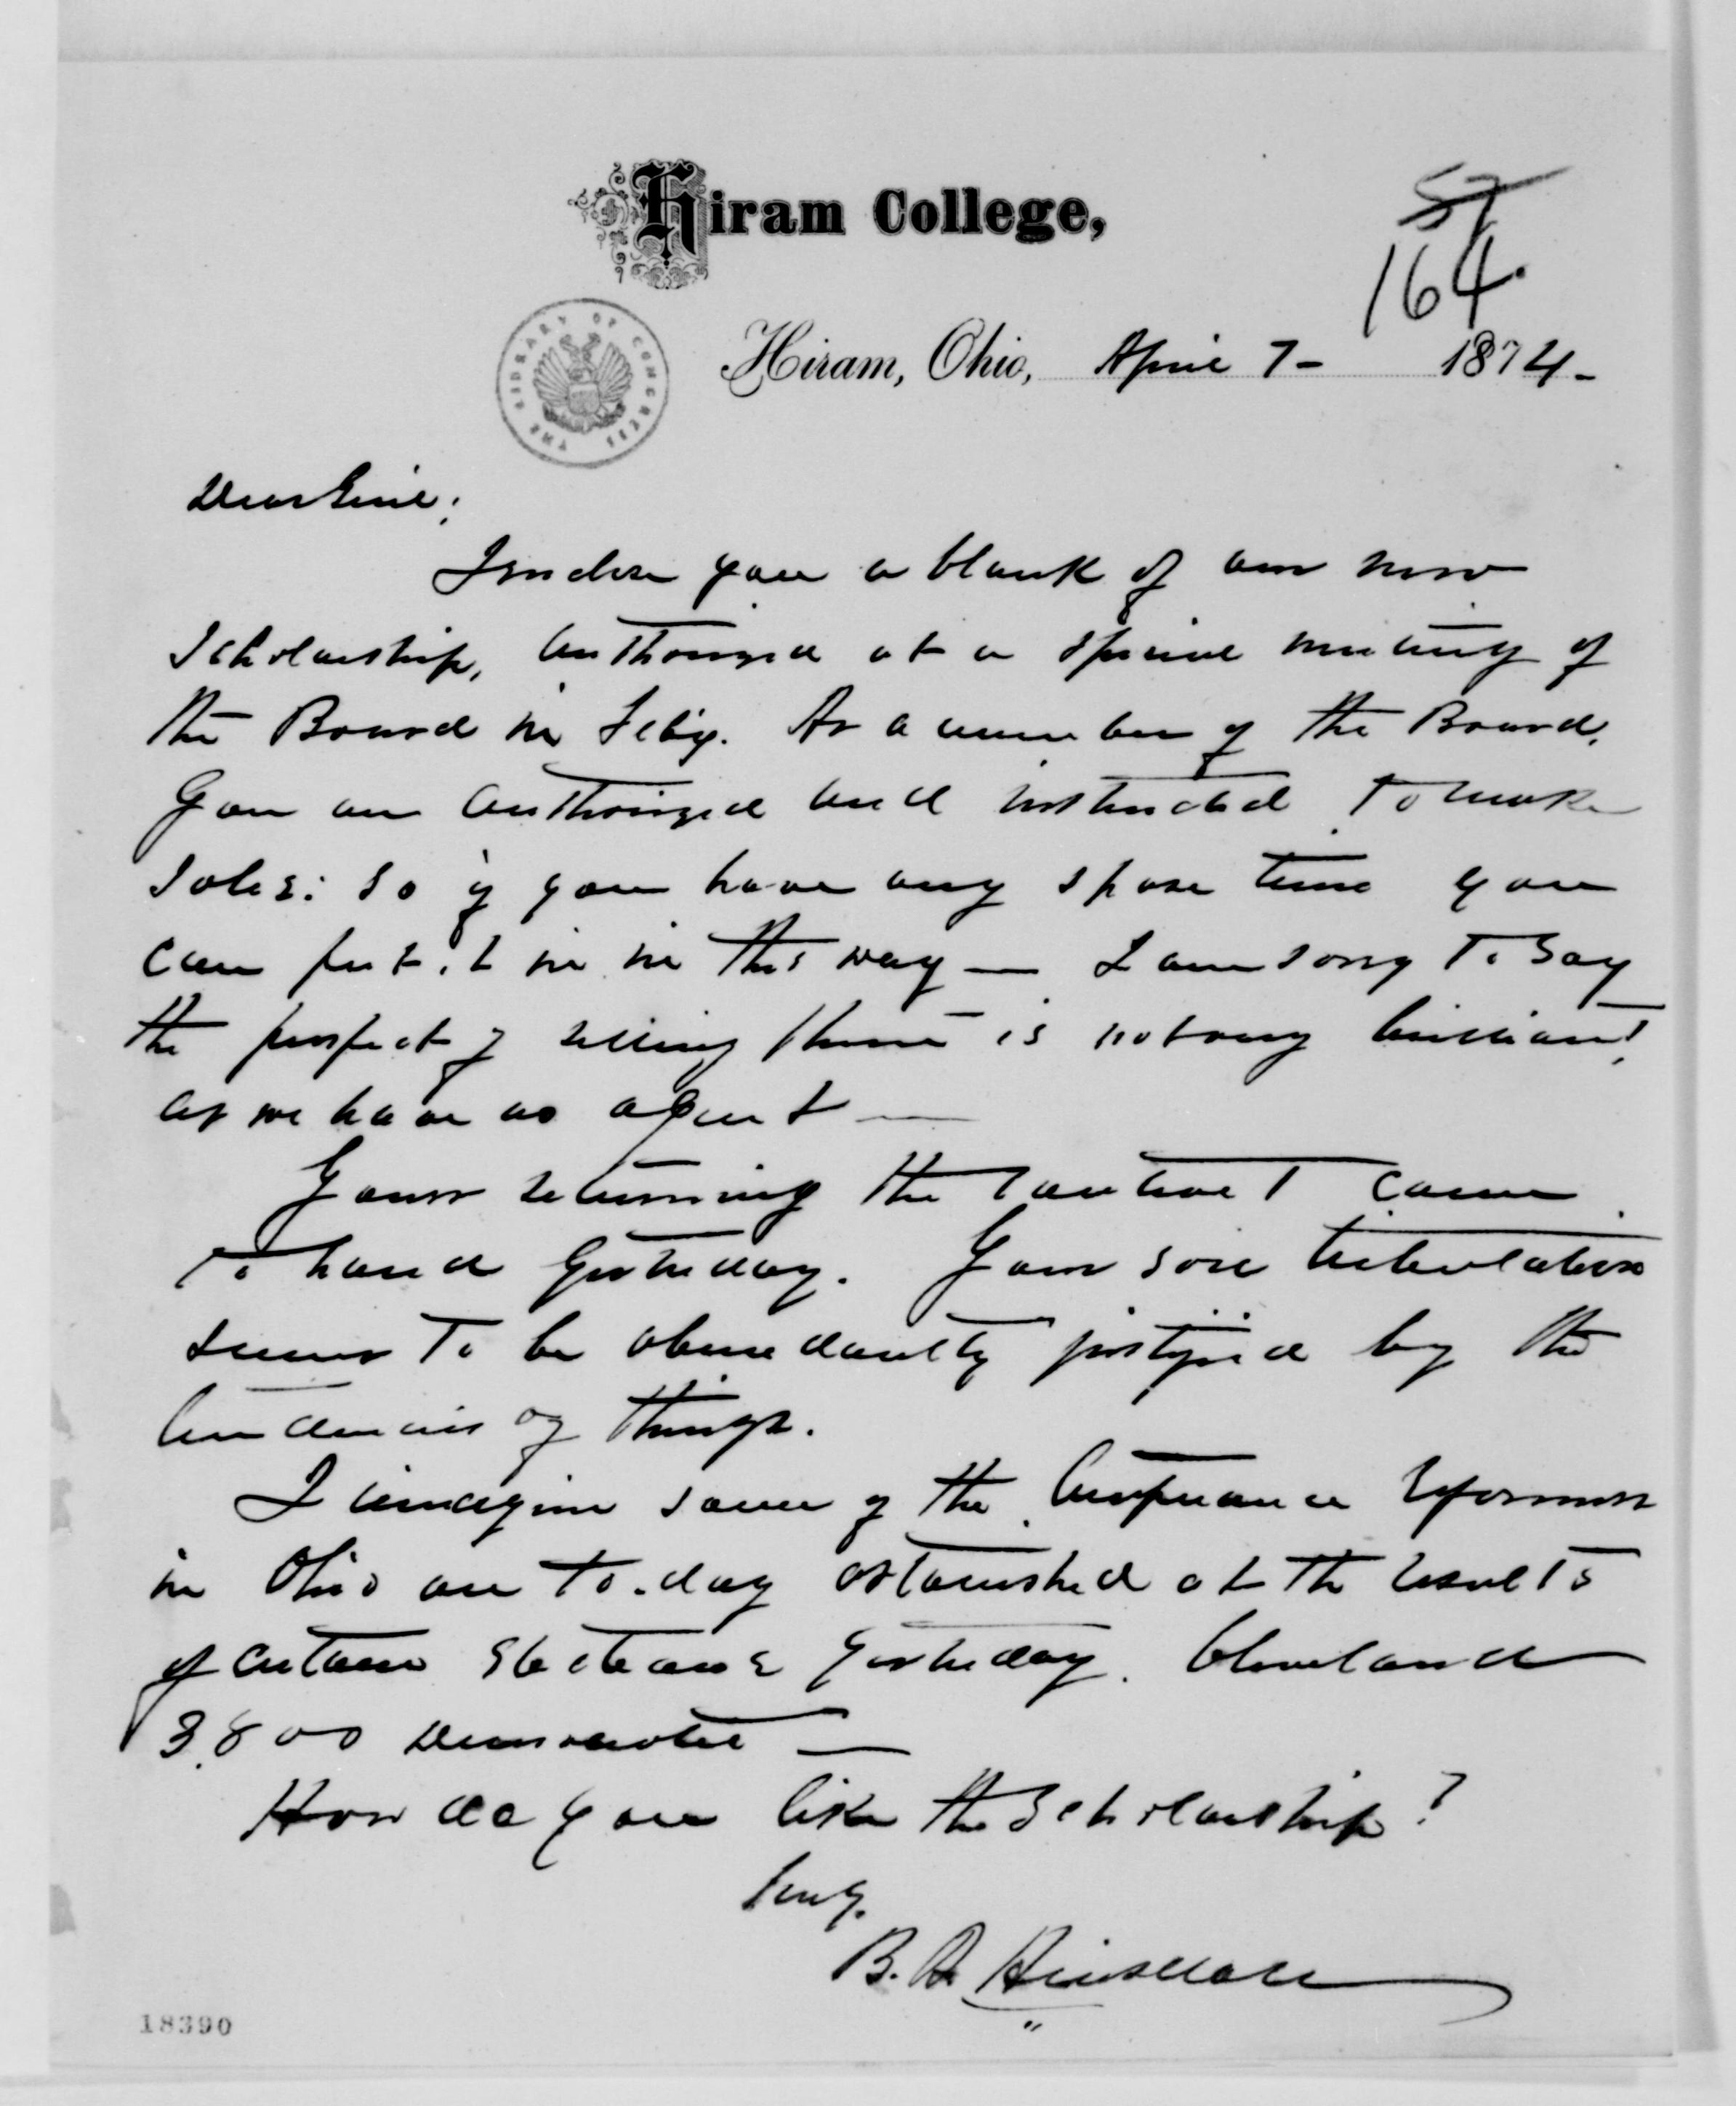 Hiram College,
57
164.
Hiram, Ohio, April 7- 1874-
THE LIBRARY OF CONGRESS
Dear Genl;
I enclose you a blank of our new
Scholarship, authorized at a special meeting of
the Board in Feby. As a member of the Board,
you are authorized and instructed to make
sales: so if you have any spare time you
can put it in in this way — I am sorry to say
the prospect of selling them is not very brilliant,
as we have no agent —
Yours returning the contract came
to hand yesterday. Your tribulation
seems to be abundantly justified by the
tendencies of things.
I imagine some of the temperance reformers
in Ohio are to-day astonished at the results
of certain elections yesterday. Cleveland
3,800 Democratic —
How do you like the Scholarship?
Truly.
B. A. Hinsdale
18390